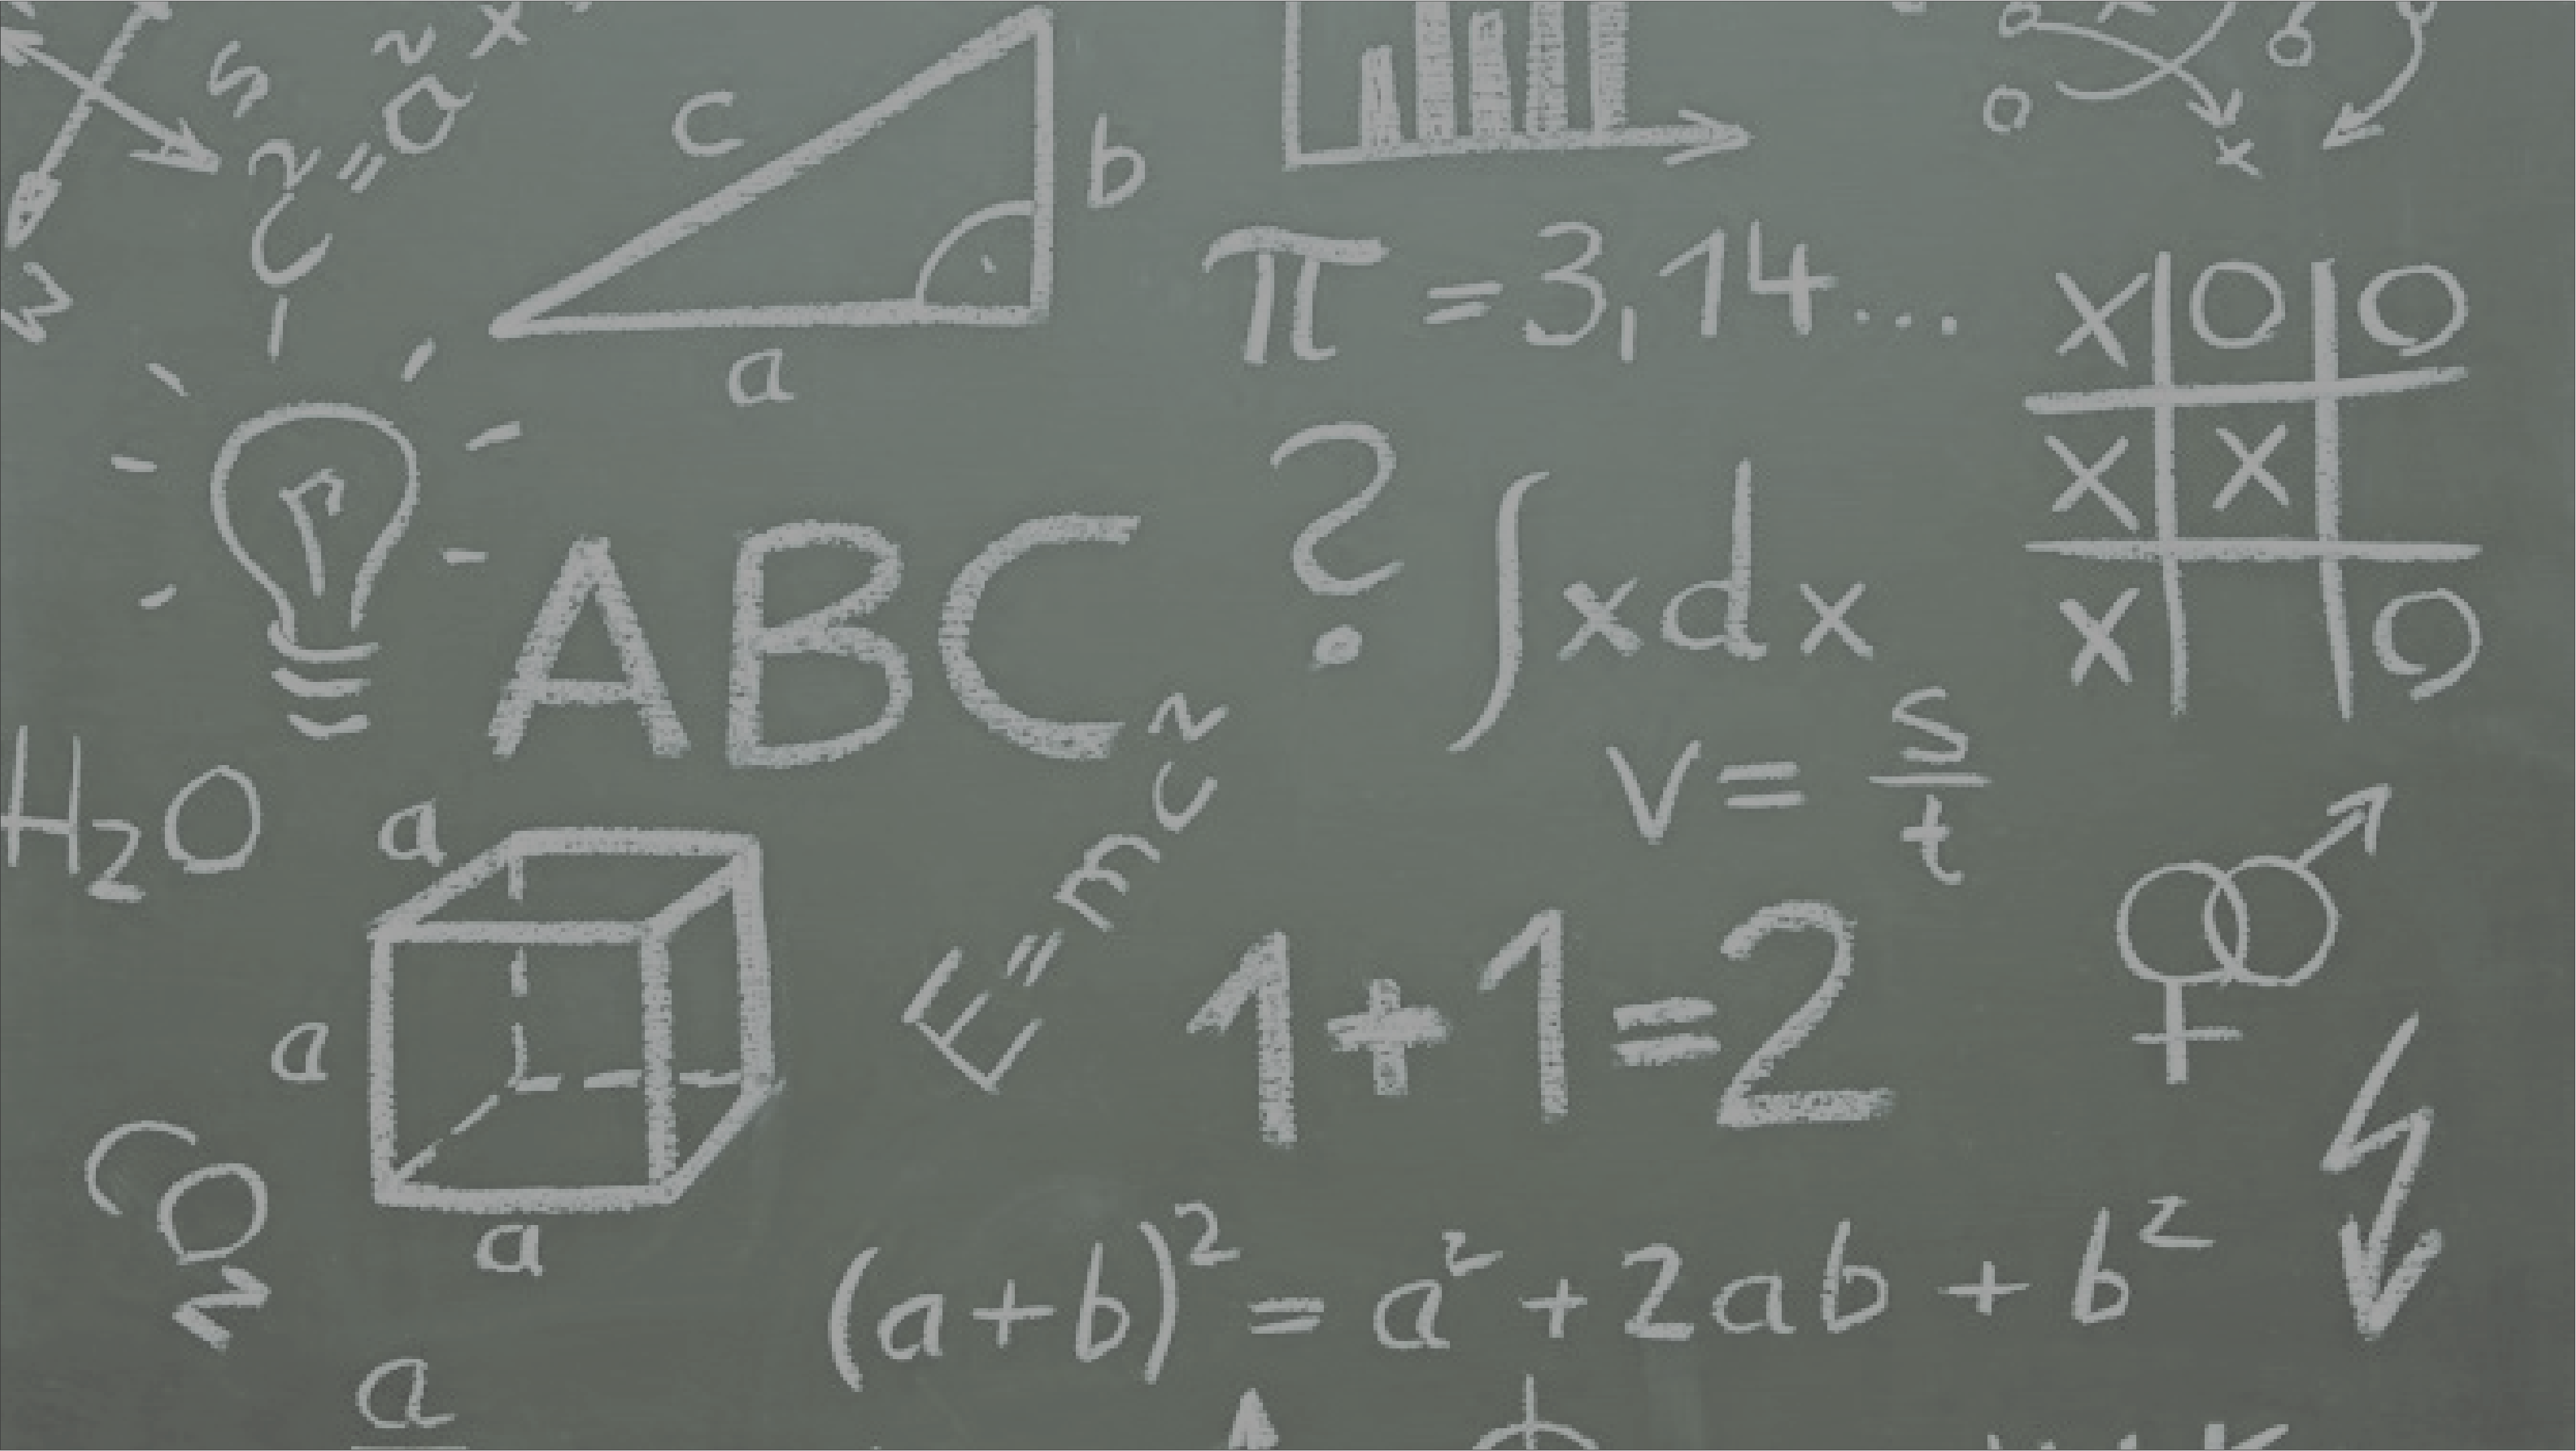 S
W
c² = a²
c
b
a
π = 3,14...
X O O
X X
X O
ABC
?
∫xdx
v = s/t
H₂O
a
a
a
E=mc²
1+1=2
CO₂
(a+b)² = a² + 2ab + b²
a